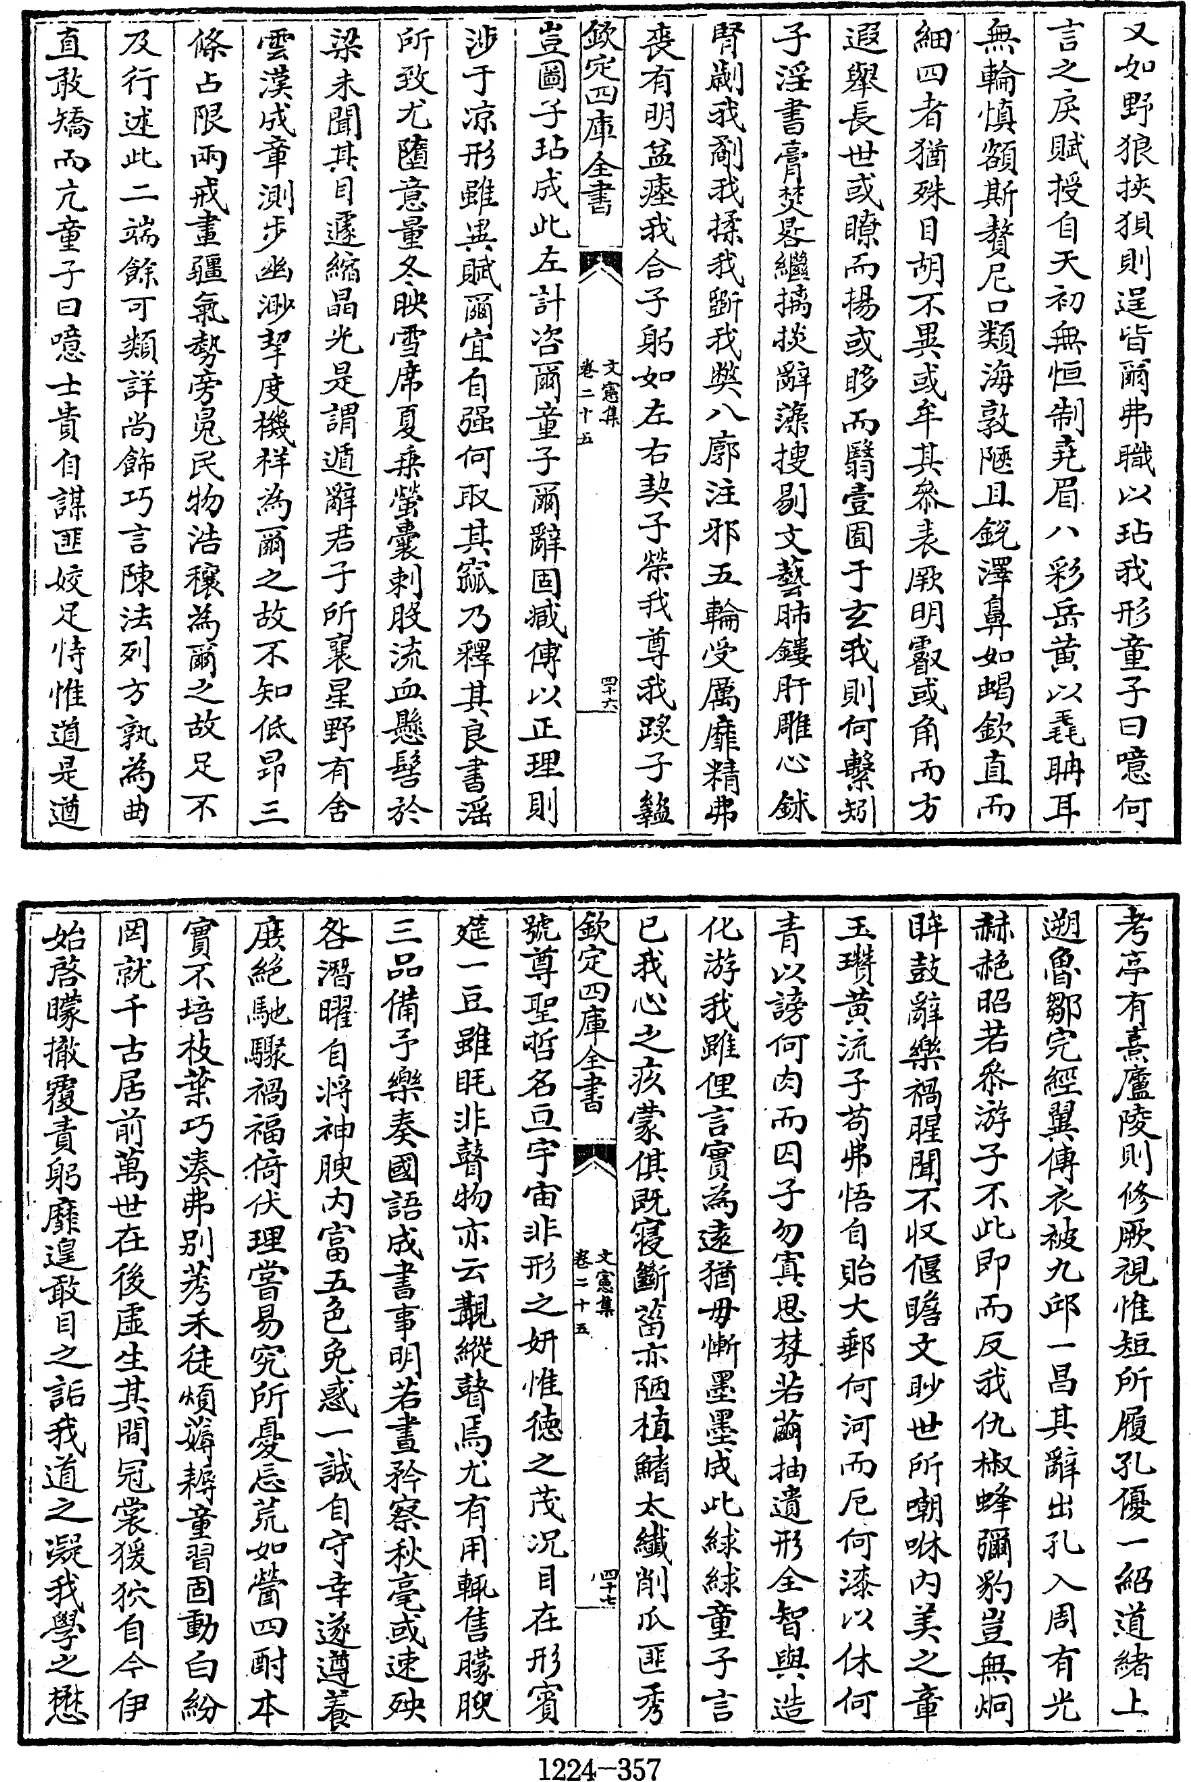 又如野狼挾狽則逞皆爾弗職以玷我形童子曰噫何
言之戾賦授自天初無恒制堯眉八彩岳黄以毳聃耳
無輪慎顙斯贅尼口類海敦陋且鋭澤鼻如蝎欽直而
細四者猶殊目胡不異或牟其叅表厥明叡或角而方
遐舉長世或瞭而揚或眵而翳壹囿于玄我則何繫矧
子淫書膏焚晷繼摛掞辭藻搜剔文藝肺鏤肝雕心鉥
腎劌我劀我揉我斵我獘八廓注邪五輪受厲靡精弗
喪有明盆瘞我合子躬如左右契子榮我尊我踁子
欽定四庫全書
文憲集
卷二十五
四十六
豈圖子玷成此左計咨爾童子爾辭固臧傅以正理則
涉于凉形雖異賦爾宜自强何取其窳乃釋其良書滛
所致尤墮意量冬映雪席夏乗螢囊刺股流血懸髻於
梁未聞其目遽縮晶光是謂遁辭君子所襄星野有舍
雲漢成章測步幽渺挈度機祥為爾之故不知低昂三
條占限兩戒畫疆氣勢旁亮民物浩穰為爾之故足不
及行述此二端餘可類詳尚飾巧言陳法列方孰為曲
直敢矯而亢童子曰噫士貴自謀匪姣足恃惟道是遒
考亭有熹廬陵則修厥視惟短所履孔優一紹道緒上
遡魯鄒完經翼傳衣被九邱一昌其辭出孔入周有光
赫赩昭若叅游子不此即而反我仇椒蜂彌豹豈無炯
眸鼓辭樂禍腥聞不收偃瞻文眇世所嘲咻内美之章
玉瓉黄流子苟弗悟自貽大郵何河而卮何漆以休何
青以謗何肉而囚子勿寘思棼若繭抽遺形全智與造
化游我雖俚言實為遠猶毋慚墨墨成此綠綠童子言
已我心之疚蒙俱既寢斷菑亦陋植鰭太纎削瓜匪秀
欽定四庫全書
文憲集
卷二十五
四十七
號尊聖哲名亘宇宙非形之妍惟德之茂况目在形賓
筵一豆雖眊非瞽物亦云覯縱瞽焉尤有用輒售矇腴
三品備予樂奏國語成書事明若晝矜察秋毫或速殃
咎潛曜自將神腴内富五色免惑一誠自守幸遂遵養
庶絶馳驟禍福倚伏理當易究所憂忘荒如蓾四酎本
實不培枝葉巧湊弗别莠禾徒煩薅耨童習固動白紛
罔就千古居前萬世在後虚生其間冠裳猨狖自今伊
始啓矇撤覆責躬靡遑敢目之詬我道之凝我學之懋
1224-357